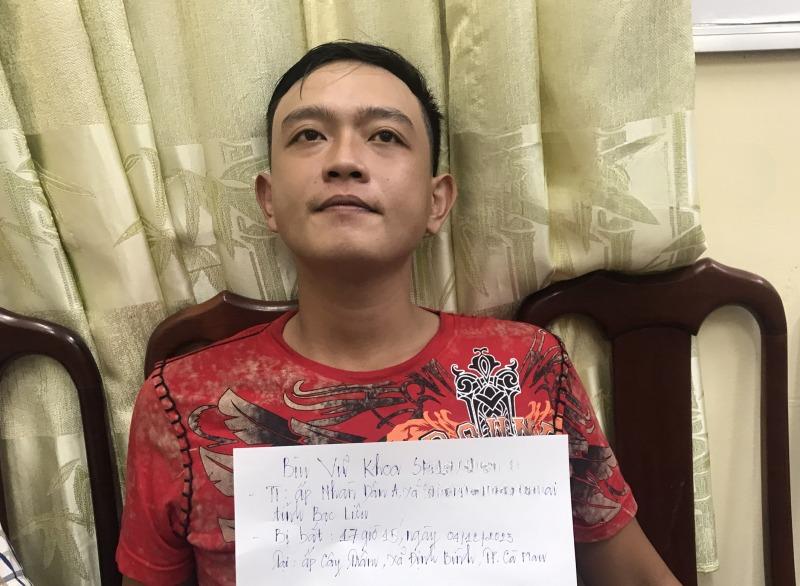 Bùi Vũ Khoa
- TT: ấp Nhàn Dân A, xã
tỉnh Bạc Liêu
- Bị bắt: 17 giờ 15, ngày 04/12/2023
Tại: ấp Cây Trâm, xã Định Bình, TP. Cà Mau